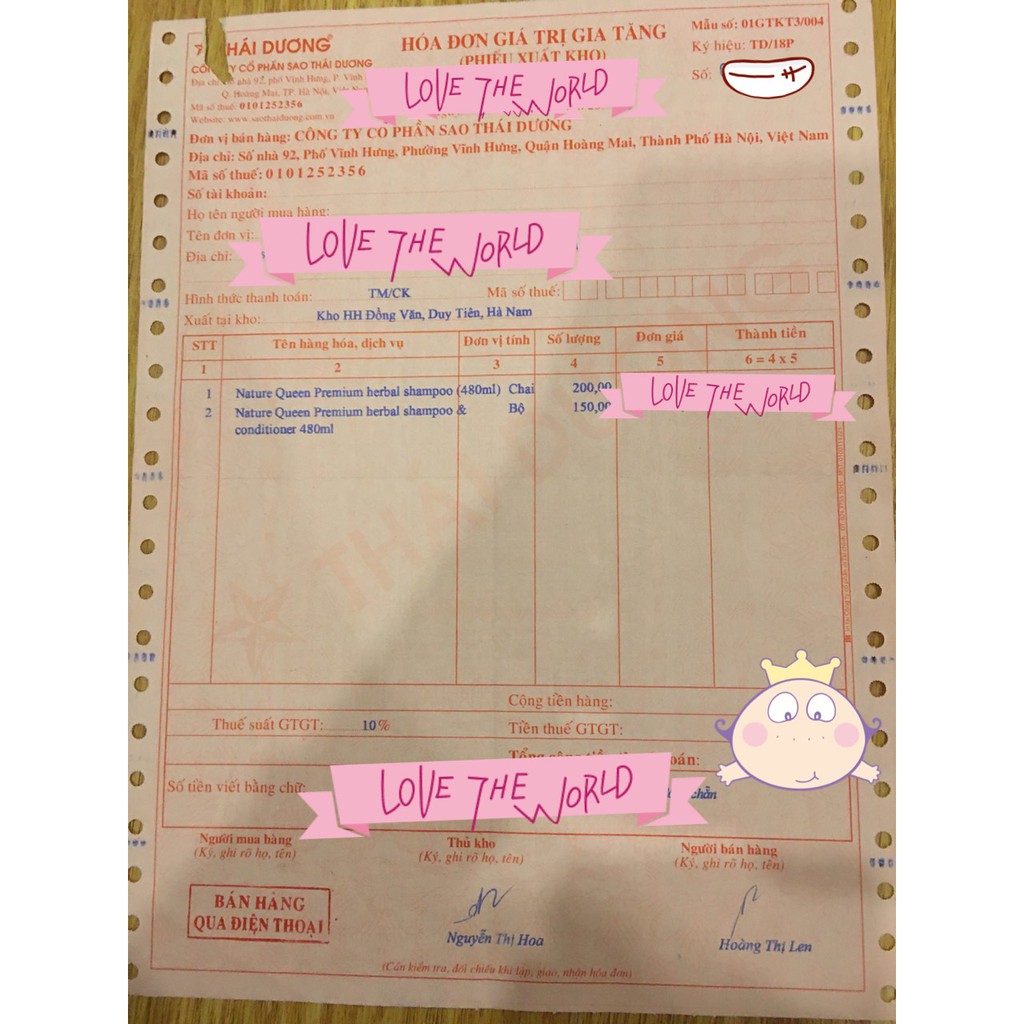 THÁI DƯƠNG®
HÓA ĐƠN GIÁ TRỊ GIA TĂNG
(PHIẾU XUẤT KHO)
Mẫu số: 01GTKT3/004
Ký hiệu: TD/18P
Số:
CÔNG TY CỔ PHẦN SAO THÁI DƯƠNG
Địa chỉ: Số nhà 92, phố Vĩnh Hưng, P. Vĩnh
Q. Hoàng Mai, TP. Hà Nội, Việt Nam
Mã số thuế: 0101252356
Website: www.saothaiduong.com.vn
LOVE THE WORLD
Đơn vị bán hàng: CÔNG TY CỔ PHẦN SAO THÁI DƯƠNG
Địa chỉ: Số nhà 92, Phố Vĩnh Hưng, Phường Vĩnh Hưng, Quận Hoàng Mai, Thành Phố Hà Nội, Việt Nam
Mã số thuế: 0101252356
Số tài khoản:
Họ tên người mua hàng:
Tên đơn vị:
Địa chỉ:
LOVE THE WORLD
Hình thức thanh toán: TM/CK Mã số thuế:
Xuất tại kho: Kho HH Đồng Văn, Duy Tiên, Hà Nam
STT Tên hàng hóa, dịch vụ Đơn vị tính Số lượng Đơn giá Thành tiền
1 2 3 4 5 6 = 4 x 5
1 Nature Queen Premium herbal shampoo (480ml) Chai 200,00
2 Nature Queen Premium herbal shampoo & Bộ 150,00
conditioner 480ml
LOVE THE WORLD
THÁI DƯƠNG
Cộng tiền hàng:
Thuế suất GTGT: 10% Tiền thuế GTGT:
Tổng cộng tiền thanh toán:
Số tiền viết bằng chữ: chẵn
LOVE THE WORLD
Người mua hàng Thủ kho Người bán hàng
(Ký, ghi rõ họ, tên) (Ký, ghi rõ họ, tên) (Ký, ghi rõ họ, tên)
BÁN HÀNG
QUA ĐIỆN THOẠI
Nguyễn Thị Hoa Hoàng Thị Len
(Cần kiểm tra, đối chiếu khi lập, giao, nhận hóa đơn)